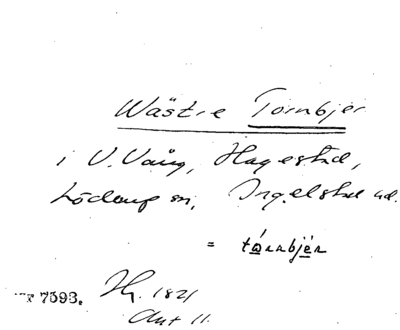 Wästre Tornbjer
i V. Vång, Hagestad,
Löderup sn, Ingelstad hd.
= tórnbjér
7593. Hg. 1821
Akt 11.